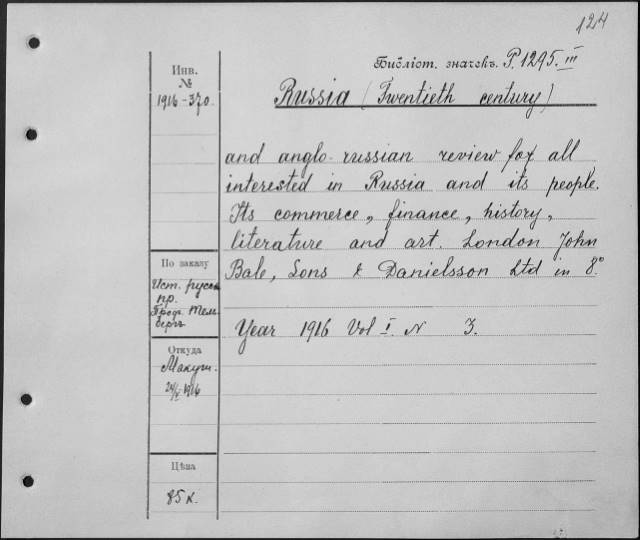 124
Библіот. значекъ. P.1295. III
Инв.
№
1916-370.
Russia (Twentieth century)
and anglo-russian review for all
interested in Russia and its people.
Its commerce, finance, history,
literature and art. London John
Bale, Sons & Danielsson Ltd in 8°.
По заказу
Ист. русск
пр.
Проф. Тель
бергъ
Year 1916 Vol I. N 3.
Откуда
Макуш.
1916
Цѣна
85 к.